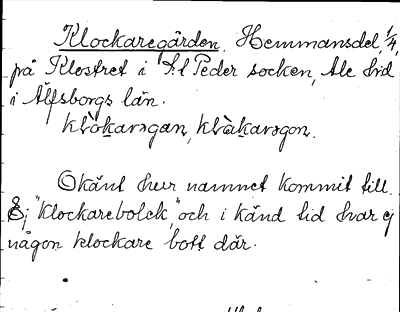 Klockaregården. Hemmansdel, 1/4,
på Klostret i S:t Peder socken, Ale hd
i Älfsborgs län.
klòkaragan, klòkaragon.
Okänt hur namnet kommit till.
Ej "klockarebolek", och i känd tid har ej
någon klockare bott där.